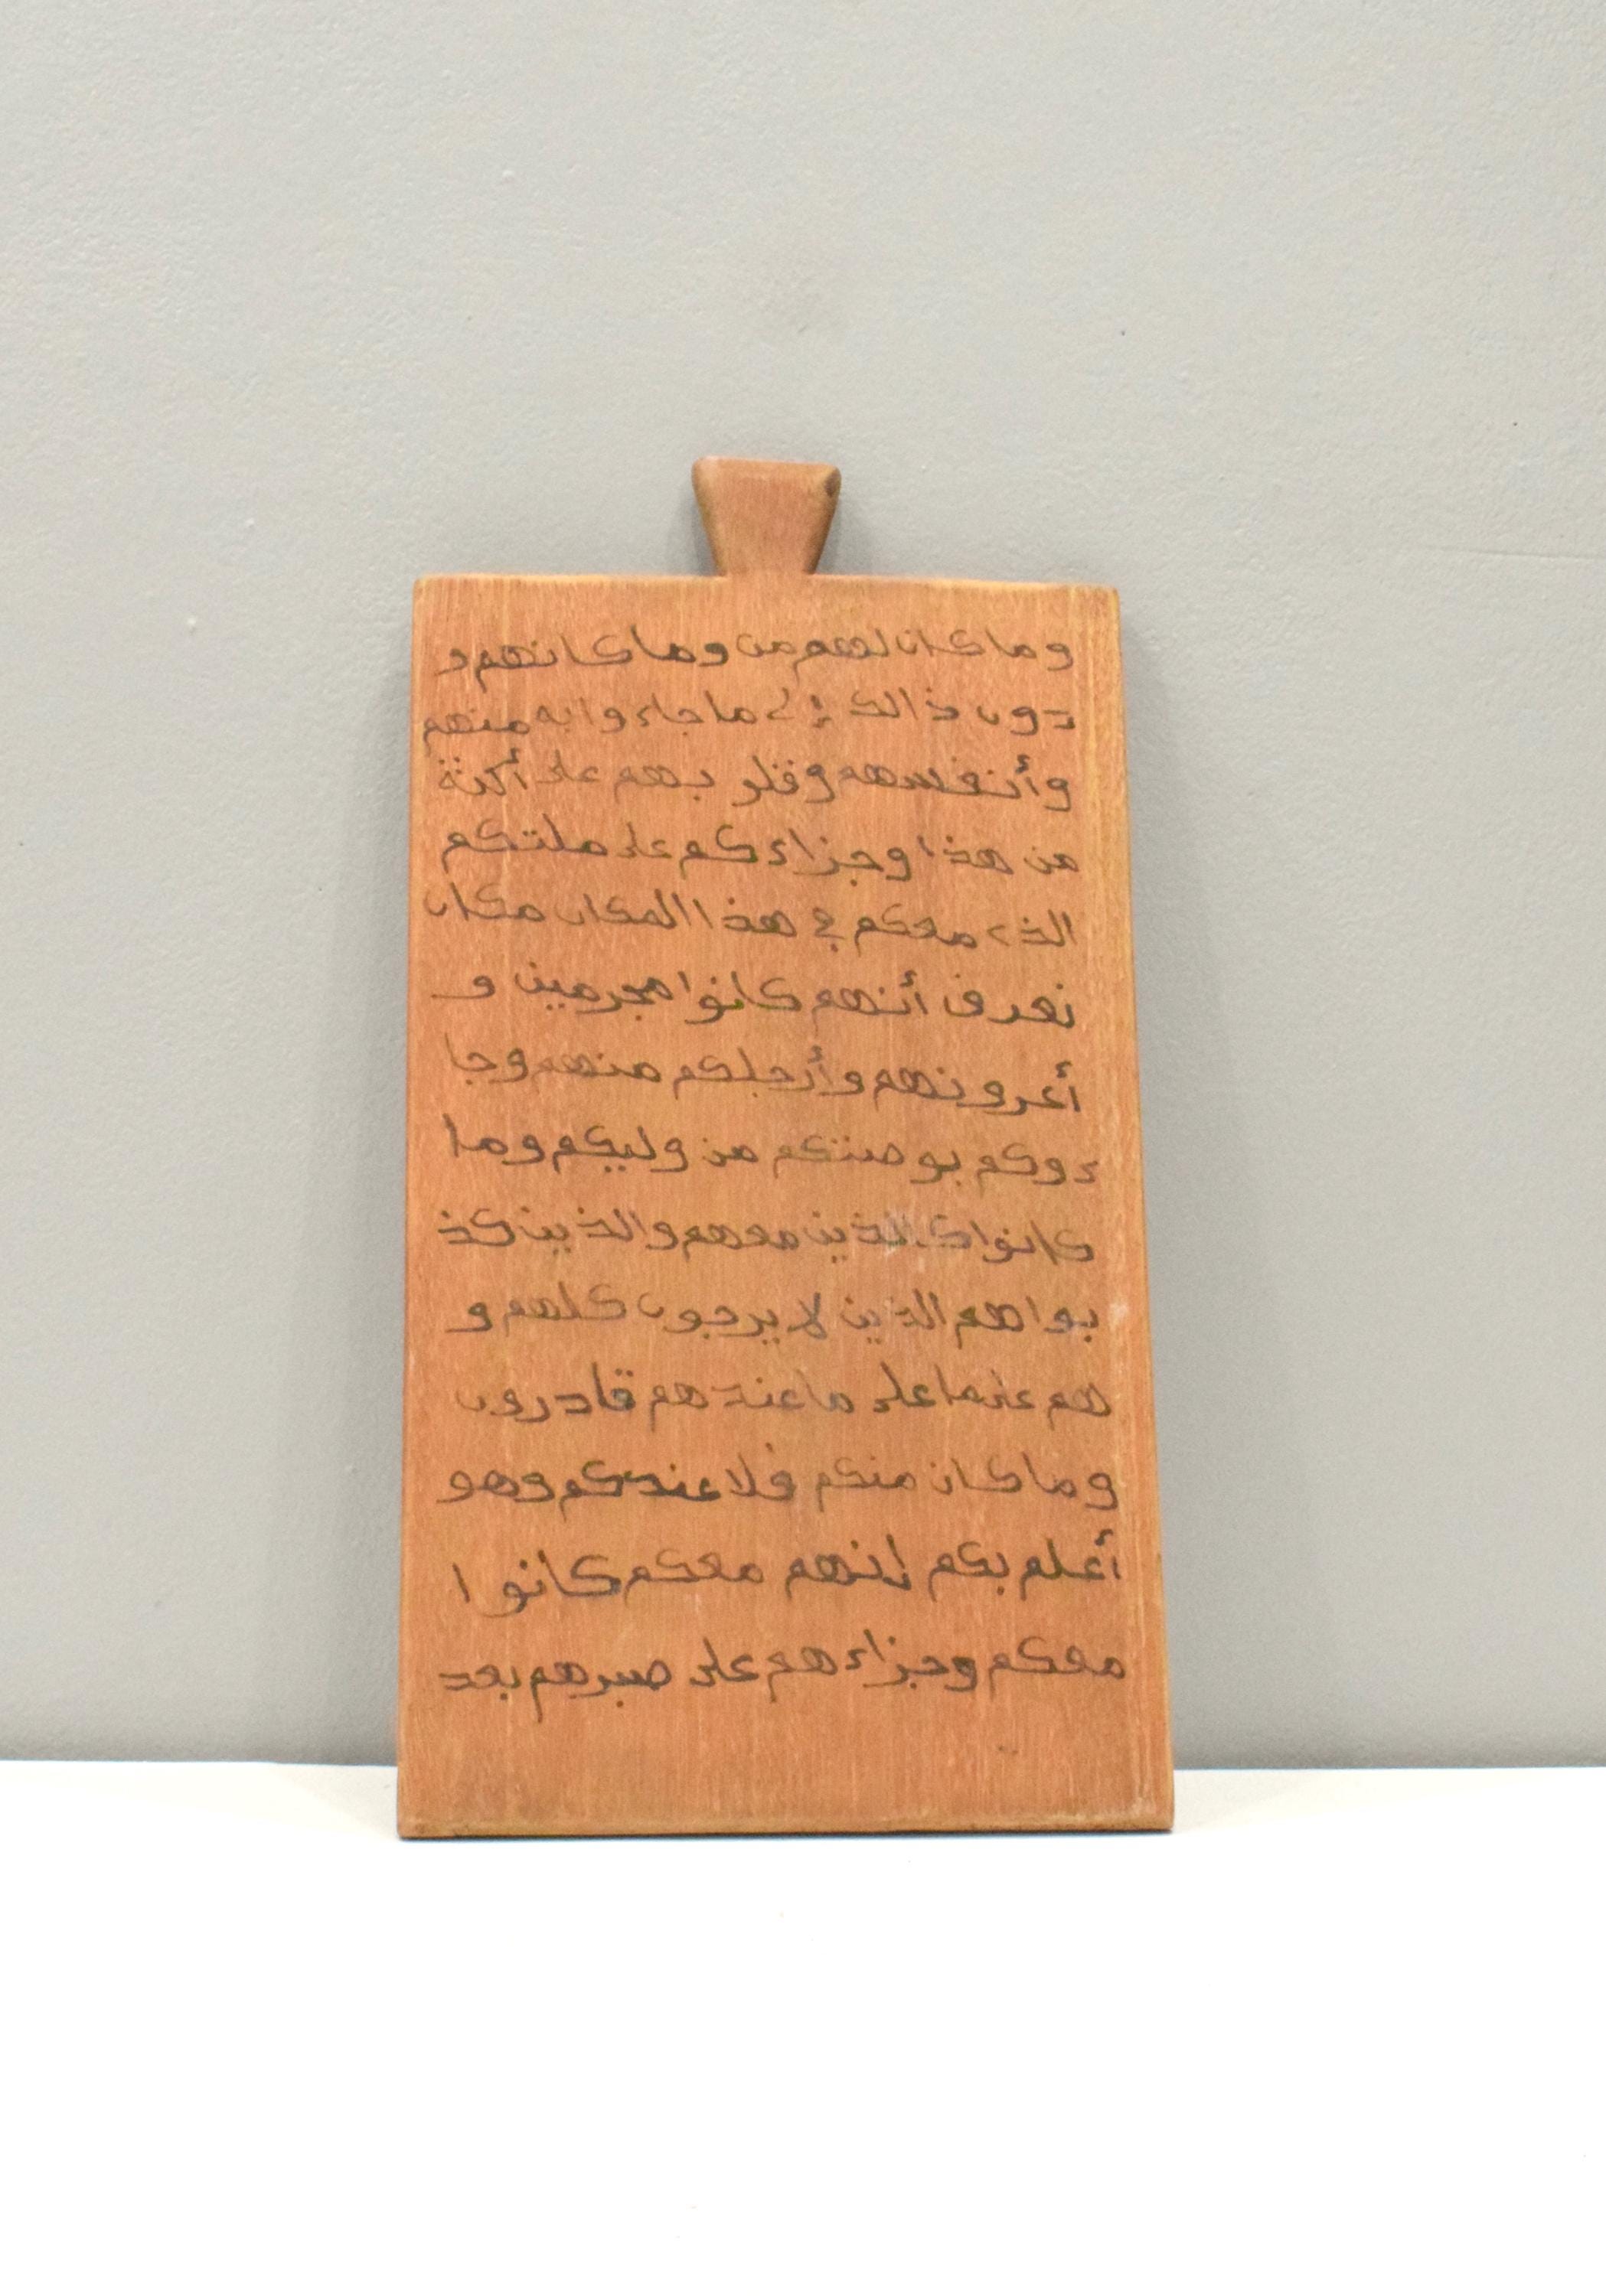 وما كان لهم من وما كانهم و
دون ذالك إلى ما جاء وا به منهم
وأنفسهم وقلو بهم على أكنة
من هذا وجزاء كم على ملتكم
الذي معكم في هذا المكان مكان
نعرف أنهم كانوا مجرمين و
أعرونهم وأرجلكم منهم وجا
ءوكم من وليكم وما
كانوا كالذين معهم والذين كذ
بوا هم الذين لا يرجون كلهم و
هم على ما عندهم قادرون
وما كان منكم فلا عندكم وهو
أعلم بكم إنهم معكم كانوا
معكم وجزاء هم على صبرهم بعد